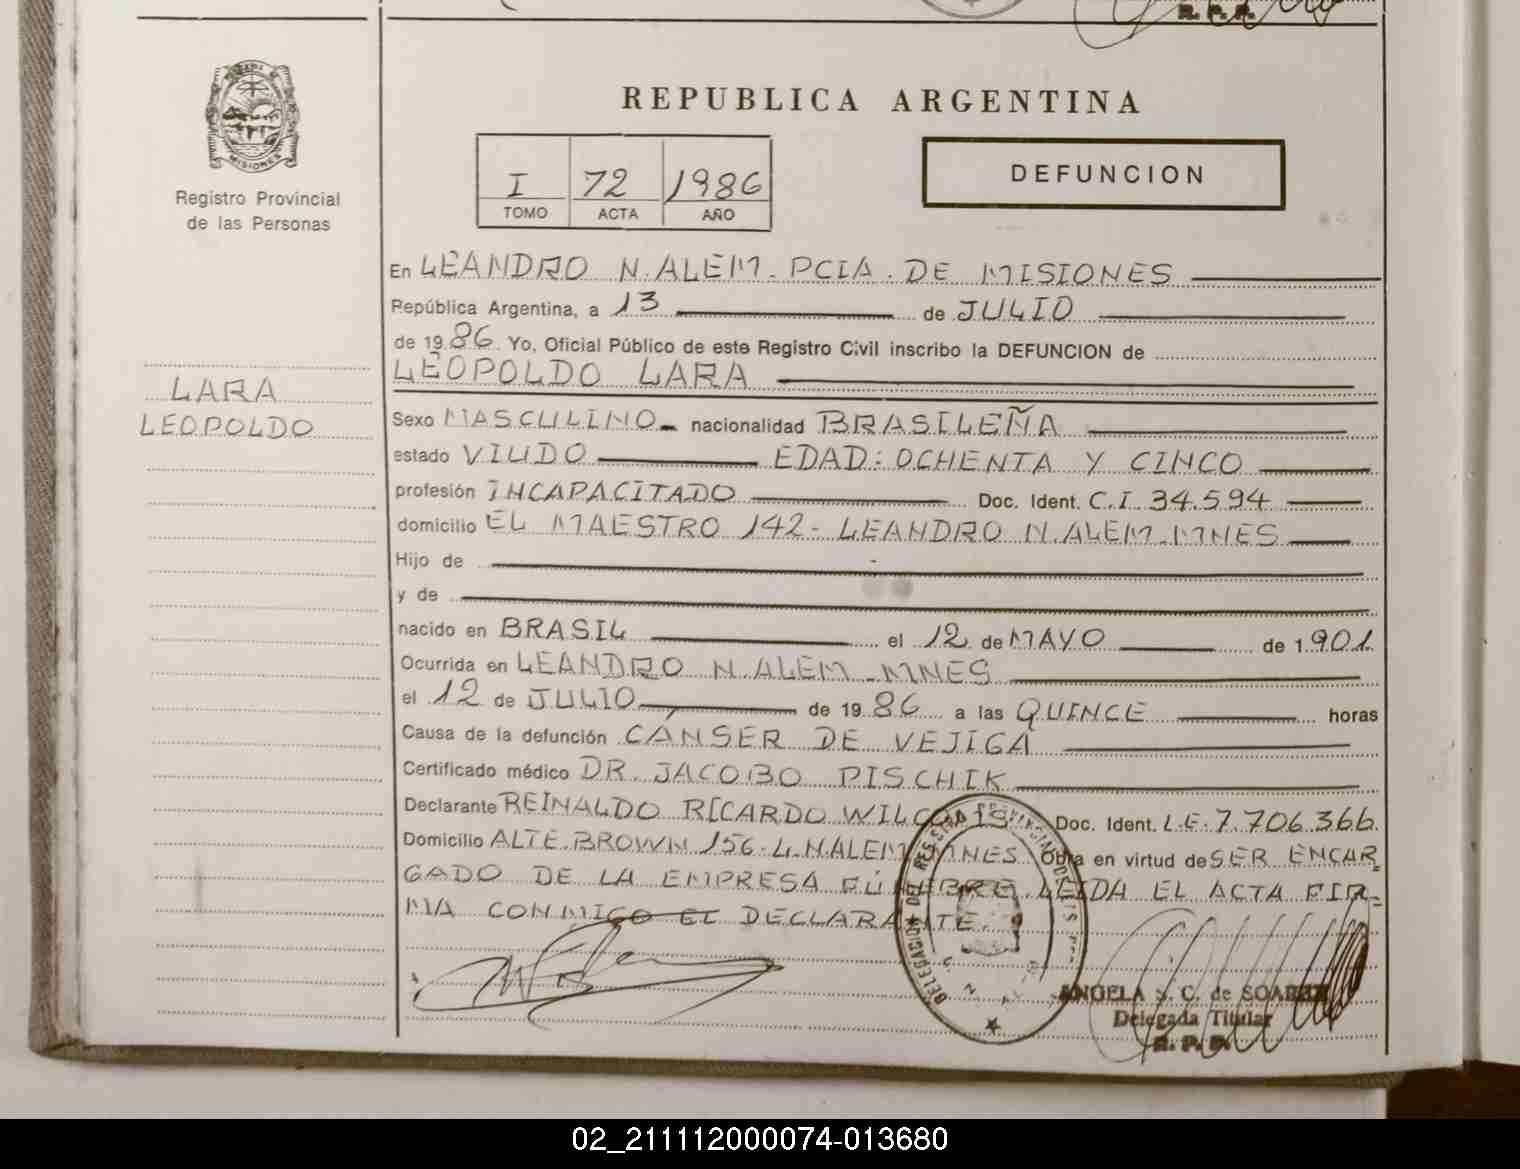 R. P. P.
MISIONES
Registro Provincial
de las Personas
LARA
LEOPOLDO
REPUBLICA ARGENTINA
I 72 1986
TOMO ACTA AÑO
DEFUNCION
En LEANDRO N. ALEM - PCIA. DE MISIONES
República Argentina, a 13 de JULIO
de 1986. Yo, Oficial Público de este Registro Civil inscribo la DEFUNCION de
LEOPOLDO LARA
Sexo MASCULINO - nacionalidad BRASILEÑA
estado VIUDO EDAD: OCHENTA Y CINCO
profesión INCAPACITADO Doc. Ident. C.I. 34.594
domicilio EL MAESTRO 142 - LEANDRO N. ALEM - MNES
Hijo de
y de
nacido en BRASIL el 12 de MAYO de 1.901.
Ocurrida en LEANDRO N. ALEM - MNES
el 12 de JULIO de 1986 a las QUINCE horas
Causa de la defunción CÁNSER DE VEJIGA
Certificado médico DR. JACOBO PISCHIK
Declarante REINALDO RICARDO Doc. Ident. L.E. 7.706.366
Domicilio ALTE. BROWN 156 - L.N.ALEM MNES Obra en virtud de SER ENCAR
GADO DE LA EMPRESA FÚNEBRE. LEIDA EL ACTA FIR=
MA CONMIGO EL DECLARANTE.
ANGELA S. C. de SOAREZ
Delegada Titular
R. P. P.
02_211112000074-013680